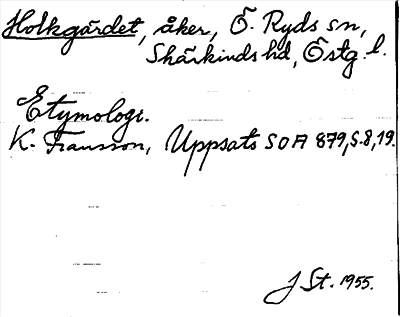 Holkgärdet, åker, Ö. Ryds sn,
Skärkinds hd, Östg. l.
Etymologi.
K. Fransson, Uppsats SOA 879, s. 8, 19.
J St. 1955.